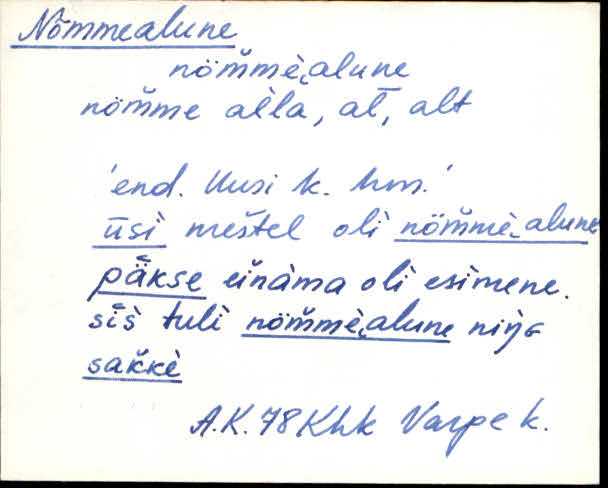 Nõmmealune
nöm̆mè‿alune
nöm̆me al̆la, al̄, alt
'end. Uusi k. hm.'
ūsì meš̆tel olì nöm̆mè‿alune
päkse eĭnàma olì esìmene.
sìs̆ tulì nöm̆mè‿alune niŋG
sak̆kè
A.K. 78 Khk Varpe k.